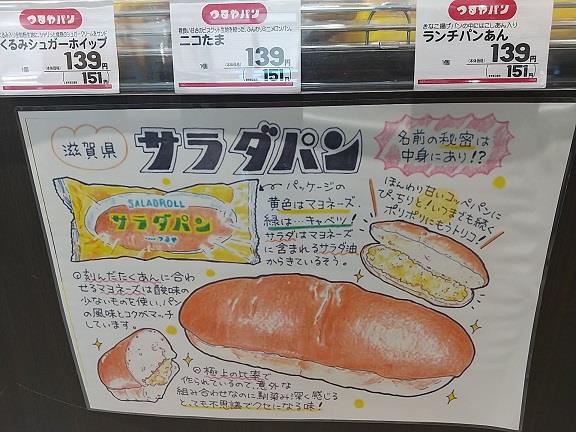 つるやパン
くるみシュガーホイップ
1個
139円
151円
つるやパン
ニコたま
1個
139円
151円
つるやパン
きなこ揚げパンの中にはこしあん入り
ランチパンあん
1個
139円
151円
滋賀県
サラダパン
名前の秘密は
中身にあり!?
SALADROLL
サラダパン
つるや
パッケージの
黄色はマヨネーズ、
緑は…キャベツ!
サラダはマヨネーズ
に含まれるサラダ油
からきているそう。
ほんわり甘いコッペパンに
ぴっちりと!いつまでも続く
ポリポリにもうトリコ!
刻んだたくあんに合わ
せるマヨネーズは酸味の
少ないものを使い、パン
の風味とコクがマッチ
しています。
極上の比率で
作られているので、意外な
組み合わせなのに馴染み深く感じる
とっても不思議でクセになる味!